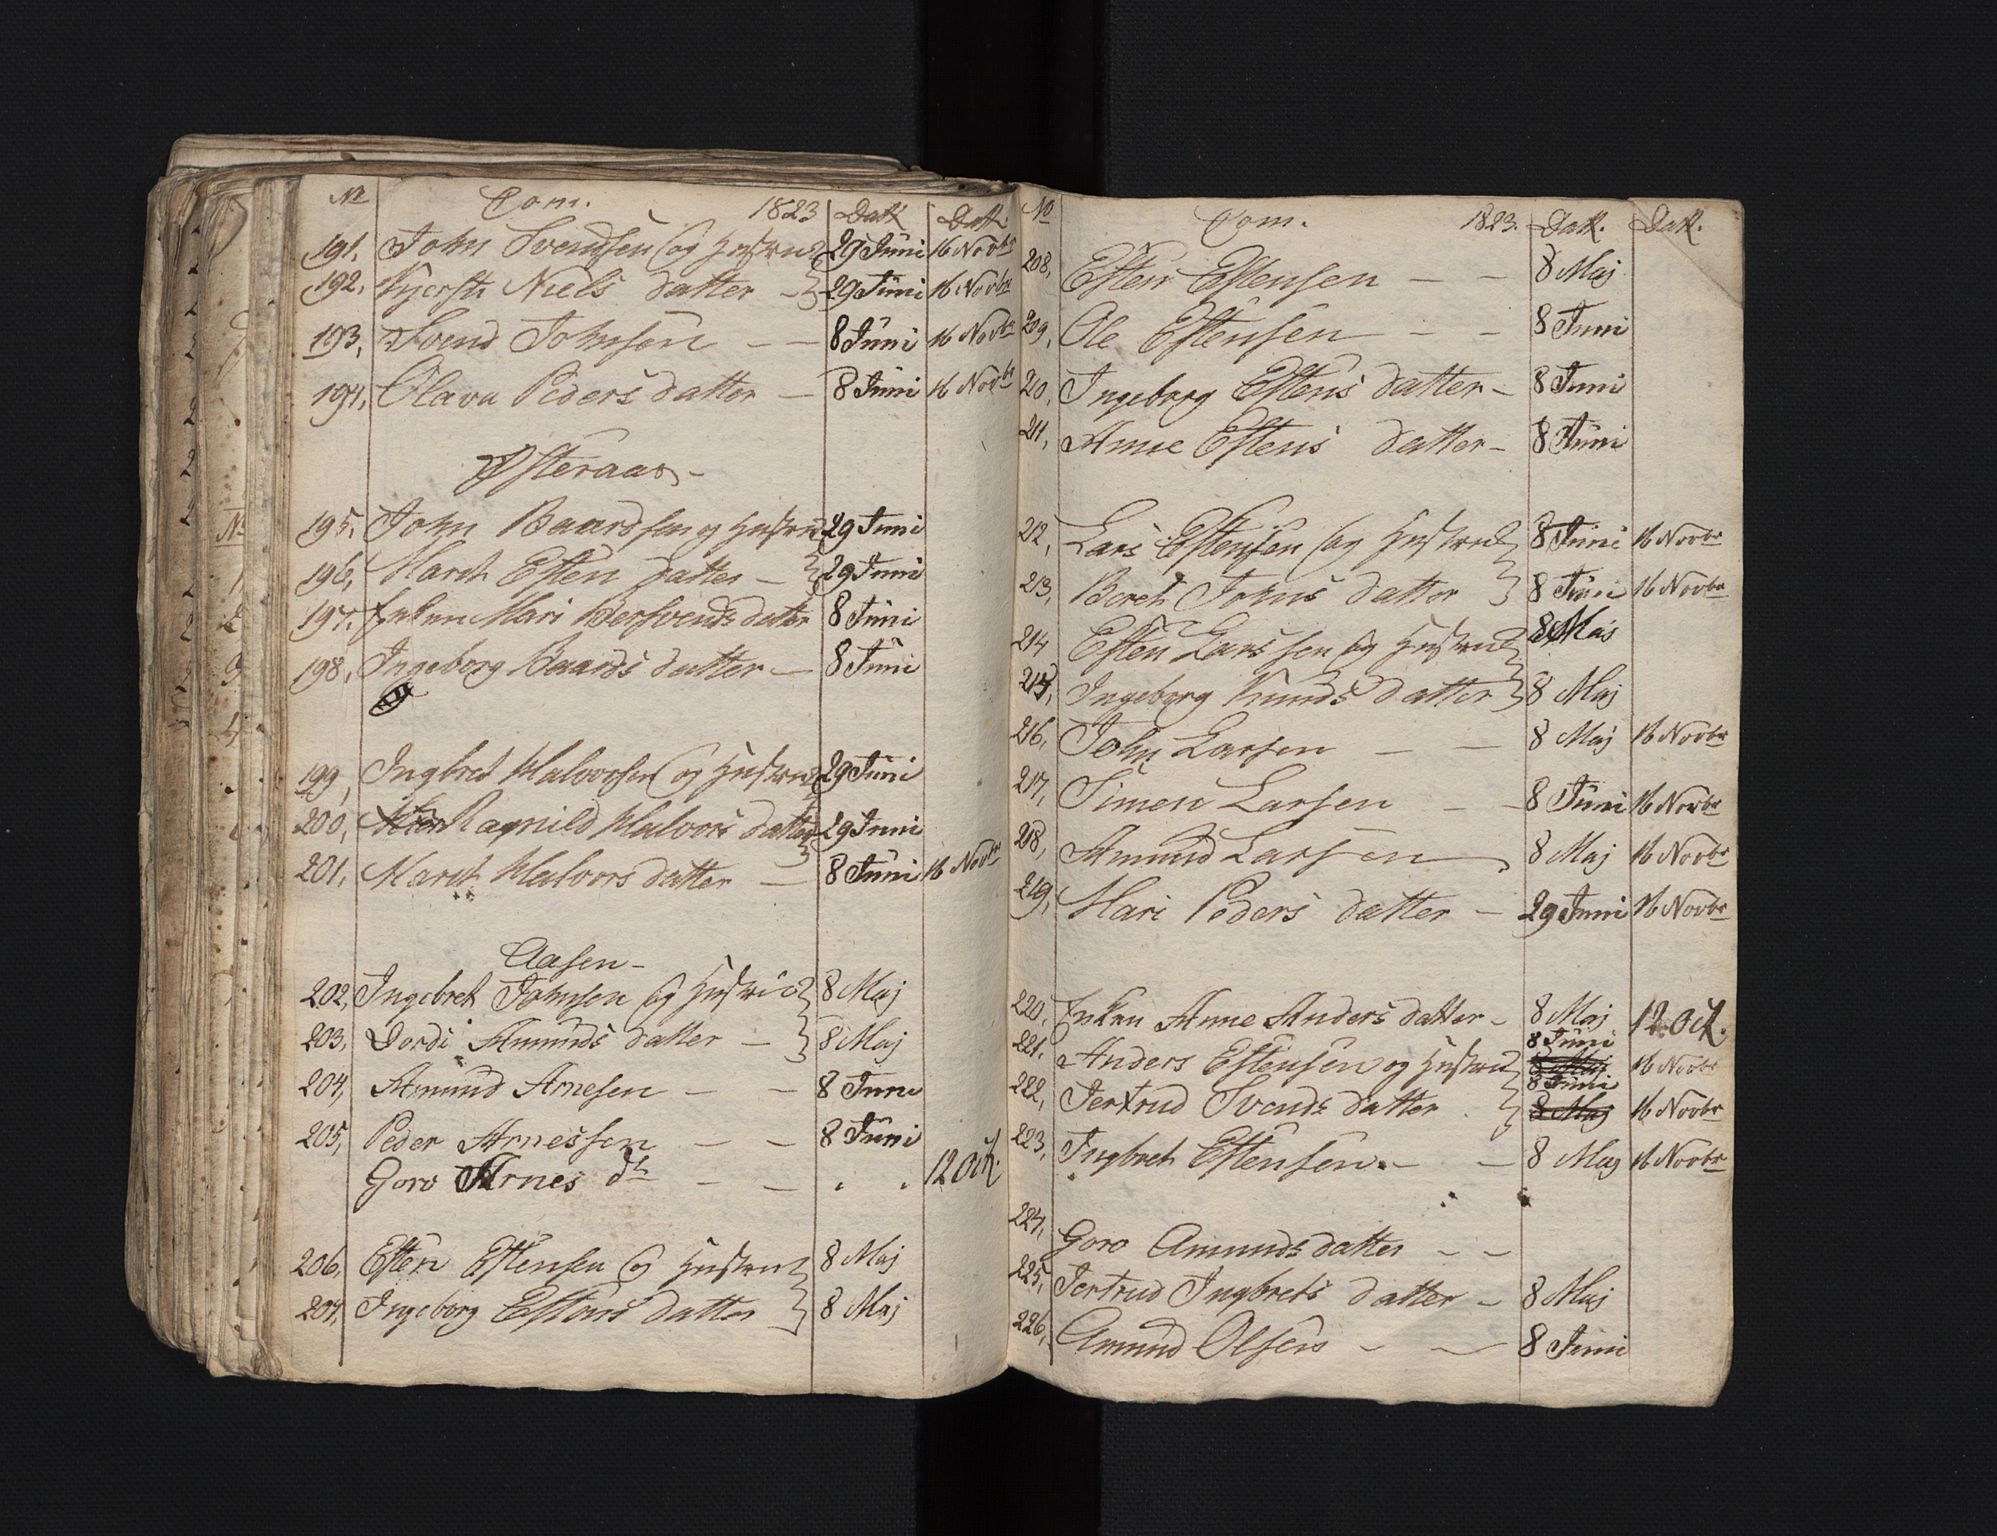 No Com. 1823 Dat. Dat.
191, John Svendsen og Hustrue 29 Juni 16 Novbr
192, Kjersti Niels datter - 29 Juni 16 Novbr
193, Svend Johnsen - - 8 Juni 16 Novbr
194, Olava Peders datter - 8 Juni 16 Novbr
Østeraas -
195, John Baardsen og Hustrue 29 Juni
196, Marit Esten datter - 29 Juni
197, Enken Mari Bersvends datter 8 Juni
198, Ingeborg Baards datter - 8 Juni
199, Ingbret Halvorsen og Hustrue 29 Juni
200, Ragnild Halvors datter 29 Juni
201, Marit Halvors datter - 8 Juni 16 Novbr
Aasen -
202, Ingebret Johnsen og Hustrue 8 Maj
203, Dordi Amunds datter - 8 Maj
204, Amund Arnesen - - 8 Juni
205, Peder Arnessen - - 8 Juni
Goro Arnes dtr - - . . 12 Oct.
206, Esten Estensen og Hustrue 8 Maj
207, Ingeborg Estens datter 8 Maj
No Com. 1823. Dat. Dat.
208, Esten Estensen - - 8 Maj
209, Ole Estensen - - 8 Juni
210, Ingeborg Estens datter - 8 Juni
211, Anne Estens datter - 8 Juni
212, Lars Estensen og Hustrue 8 Juni 16 Novbr
213, Beret Johns datter 8 Juni 16 Novbr
214 Esten Larssen og Hustrue 8 Maj
215, Ingeborg Knuds datter 8 Maj
216, John Larsen - - 8 Maj 16 Novbr
217, Simen Larsen - - 8 Juni 16 Novbr
218, Amund Larsen - 8 Maj 16 Novbr
219, Mari Peders datter - 29 Juni 16 Novbr
220, Enken Anne Anders datter - 8 Maj 12 Oct.
221, Anders Estensen og Hustrue 8 Juni 8 Maj 16 Novbr
222, Jertrud Svends datter 8 Juni 8 Maj 16 Novbr
223, Ingbret Estensen - - 8 Maj 16 Novbr
224, Goro Amunds datter - -
225, Jertrud Ingbrets datter - 8 Maj
226, Amund Olsen - - 8 Juni